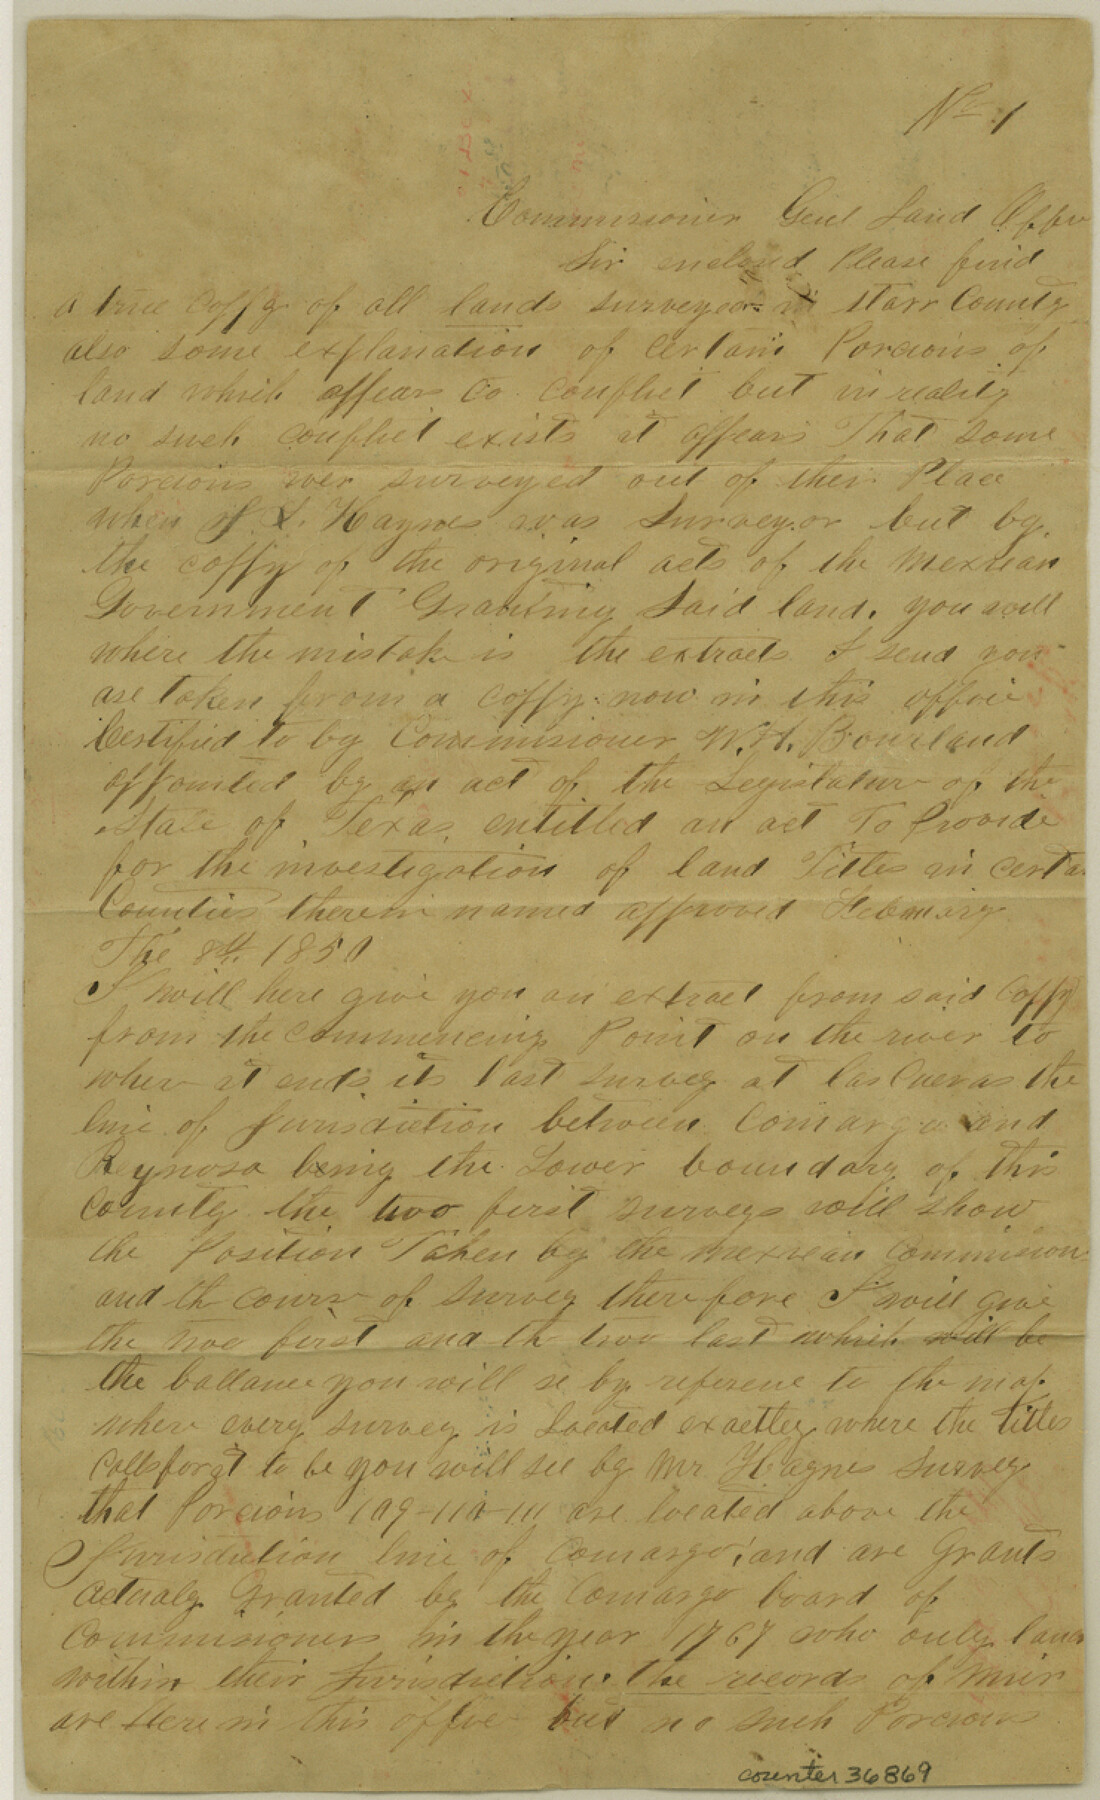 No 1
Commissioner Genl Land Offic
Sir enclosed Please find
a true coppy of all lands surveyed in Starr County
also some explanation of certain Porcions of
land which appears to conflict but in reality
no such conflict exists it appears That some
Porcions wer surveyed out of their Place
when J. L. Haynes was Surveyor but by
the coppy of the original acts of the Mexican
Government Granting Said land. you will
where the mistake is the extracts I send you
are taken from a coppy now in this office
Certified to by Commissioner W. H. Bourland
appointed by an act of the Legislature of the
State of Texas entitled an act To Provide
for the investigation of land Titles in certa
Counties therein named approved February
The 8th 1850
I will here give you an extract from said Coppy
from the commencing Point on the river to
where it ends its last survey at las Cuevas the
line of Jurisdiction between Comargo and
Reynosa being the Lower boundary of this
County the two first surveys will show
the Position Taken by the mexican Commision
and th course of survey therefore I will give
the two first and th two last which will be
the ballance you will se by referenc to the map
where every survey is Located exactley where the titles
calls for it to be you will see by Mr Haynes Survey
that Porcions 109-110-111 are located above the
Jurisdiction line of Comargo, and are Grants
actualy Granted by the Comargo board of
Commisioners in the year 1767 who only land
within their Jurisdiction. the records of Mier
are Here in this office but no such Porcions
counter 36869